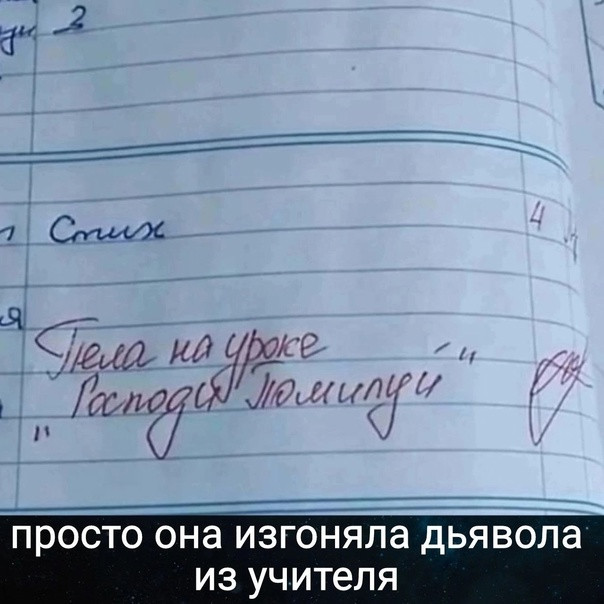 3
Стих
4
я
Пела на уроке
"Господи Помилуй"
просто она изгоняла дьявола
из учителя